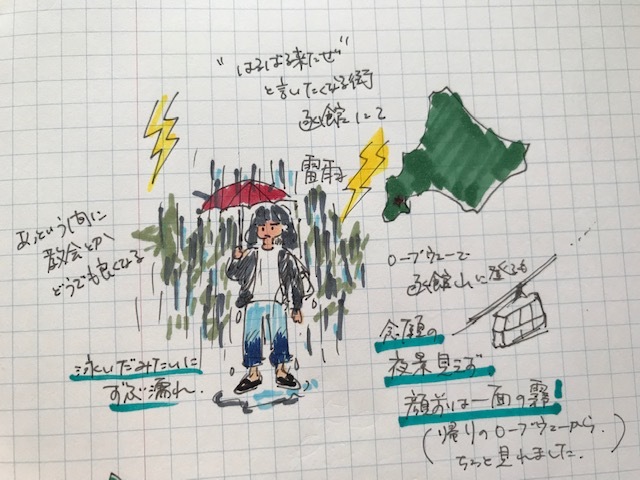 "はるばる来たぜ"
と言いたくなる街
函館にて
雷雨
あっという間に
教会とか
どうでも良くなる
泳いだみたいに
ずぶ濡れ.
ロープウェーで
函館山に登るも
念願の
夜景見えず
顔前は一面の霧!
(帰りのロープウェーから.
ちょっと見れました.)